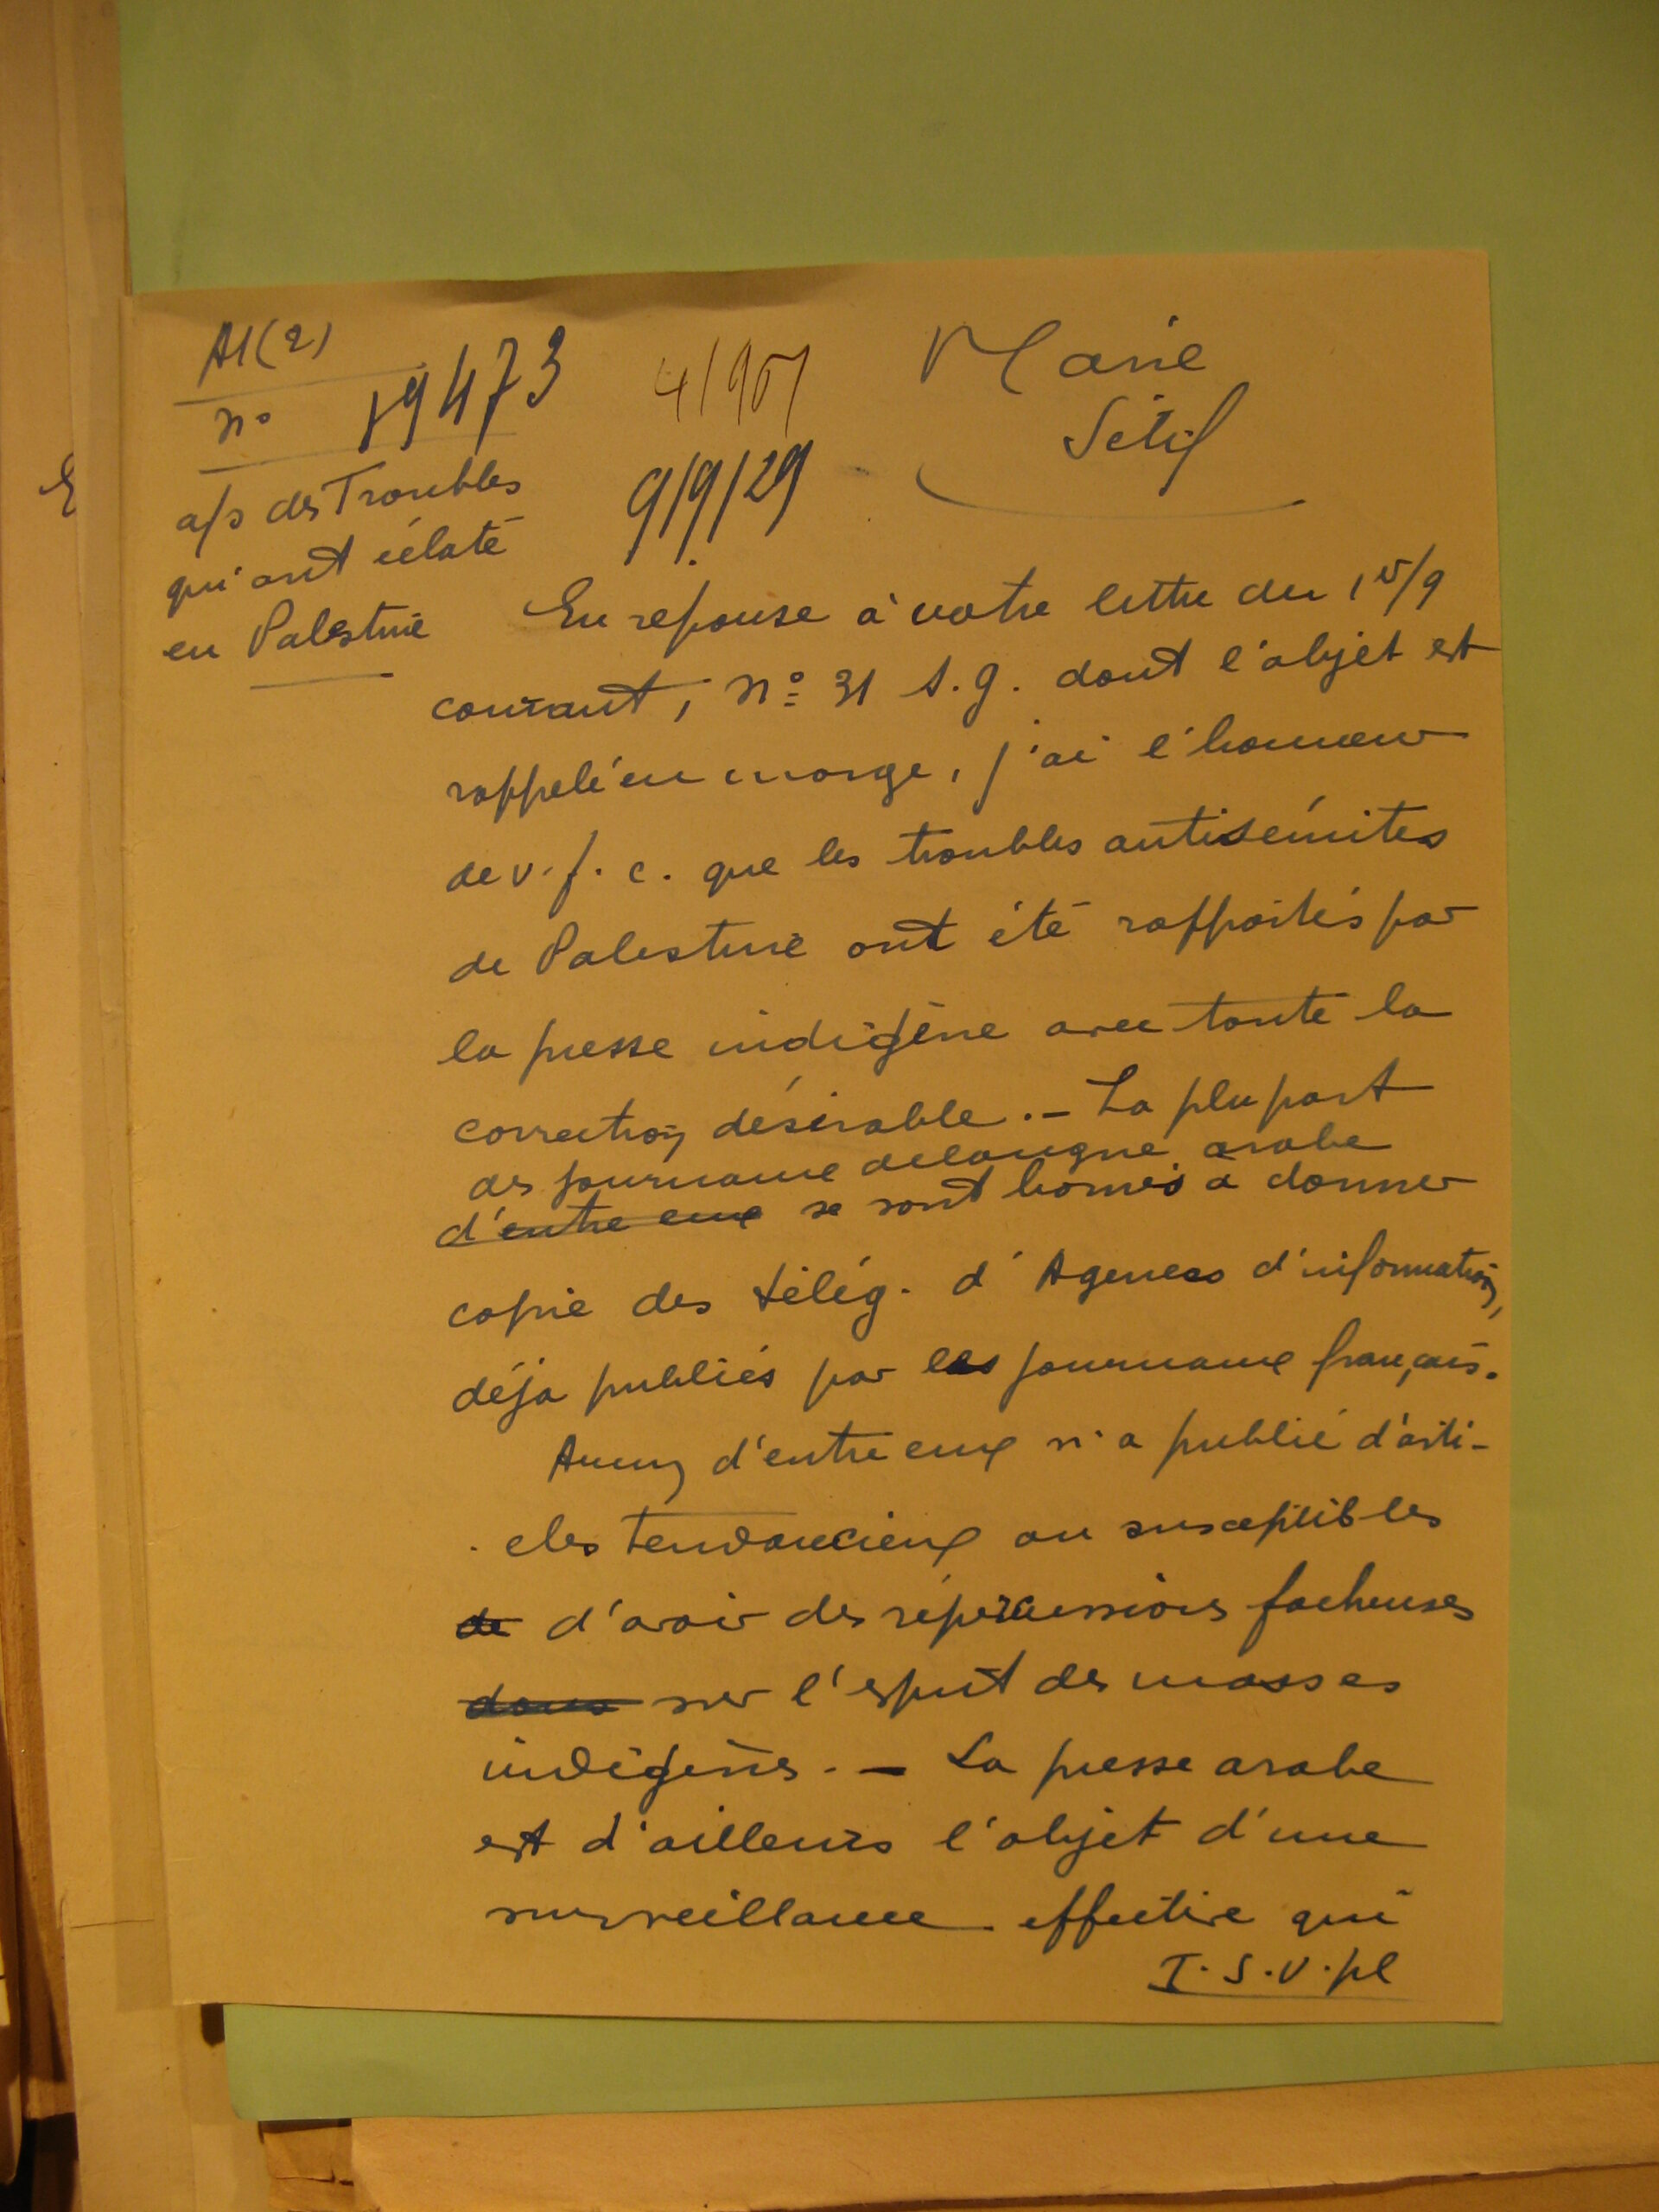 A1(2)
n° 19473
a/s des Troubles
qui ont éclaté
en Palestine
9/9/29
Maire
Sétif
En réponse à votre lettre du 1er/9
courant, n° 31 S.g. dont l'objet est
rappelé en marge, j'ai l'honneur
de v. f. c. que les troubles antisémites
de Palestine ont été rapportés par
la presse indigène avec toute la
correction désirable. - La plupart
des journaux de langue arabe
d'entre eux se sont bornés à donner
copie des télég. d'Agences d'information,
déjà publiés par les journaux français.
Aucun d'entre eux n'a publié d'arti-
cles tendancieux ou susceptibles
de d'avoir des répercussions facheuses
dans sur l'esprit des masses
indigènes. - La presse arabe
est d'ailleurs l'objet d'une
surveillance effective qui
T.S.V.pl